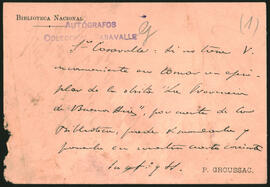 BIBLIOTECA NACIONAL
AUTÓGRAFOS
COLECCIÓN CASAVALLE
(1)
Sr. Casavalle: Si no tiene V.
inconveniente en tomar un ejem-
plar de la obrita "La Provincia
de Buenos Aires", por cuenta de la
Biblioteca, puede V. mandarlo y
ponerlo en nuestra cuenta corriente
P. GROUSSAC.